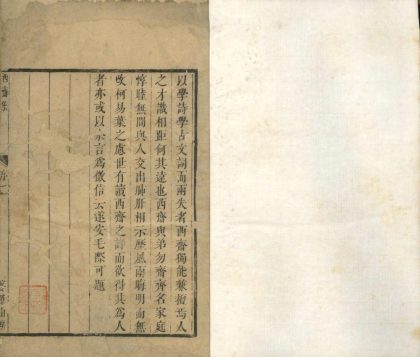 以學詩學古文詞而兩失者西齋獨能兼擅焉人
之才識相距何其遠也西齋與弟勿齋齊名家庭
惇睦無間與人交出肺肝相示歷風雨晦明而無
改柯易葉之慮世有讀西齋之詩而欲得其為人
者亦或以余言為徵信云遂安毛際可題
西齋集